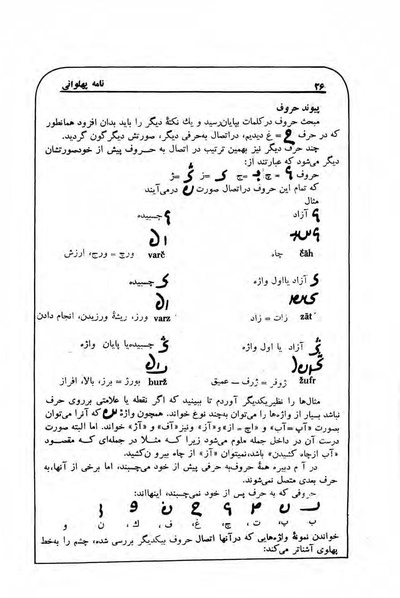 نامه پهلوانی ۲۶
پیوند حروف
مبحث حروف در کلمات بپایان رسید و یك نکتهٔ دیگر را باید بدان افزود همانطور
که در حرف = غ دیدیم، در اتصال به حرفی دیگر، صورتش دیگر گون گردید.
چند حرف دیگر نیز بهمین ترتیب در اتصال به حروف پیش از خود صورتشان
دیگر می‌شود که عبارتند از:
حروف = چ = ج = ز = ژ
که تمام این حروف در اتصال صورت در می‌آیند
مثال
آزاد چسبیده
čāh چاه varč ورچ = ورج، ارزش
مثال‌ها: آزاد یا اول واژه چسبیده
zāt زات = زاد varz ورز، ریشهٔ ورزیدن، انجام دادن
آزاد یا اول واژه چسبیده یا پایان واژه
žufr ژوفر = ژرف – عمیق burž بورژ = برز، بالا، افراز
مثال‌ها را نظیر یکدیگر آوردم تا ببینید که اگر نقطه یا علامتی برروی حرف
نباشد بسیار از واژه‌ها را می‌توان به‌چند نوع خواند. همچون واژهٔ که آنرا می‌توان
بصورت «آپ = آب» و «اچ = از» و «آز» ونیز «آف» و «آژ» خواند. اما البته صورت
درست آن در داخل جمله معلوم می‌شود زیرا که مثلا در جمله‌ای که مقصود
«آب از چاه کشیدن» باشد، نمیتوان «آز» از چاه بیرون کشید.
در آم دبیره همهٔ حروف به حرفی پیش از خود می‌چسبند، اما برخی از آنها، به
حرف بعدی متصل نمی‌شوند.
حروفی که به حرف پس از خود نمی‌چسبند، اینهااند:
ب پ، ت، چ، غ، ف، ك، ن و
خواندن نمونهٔ واژه‌هایی که در آنها اتصال حروف بیکدیگر بررسی شده، چشم را به‌خط
پهلوی آشناتر می‌کند: